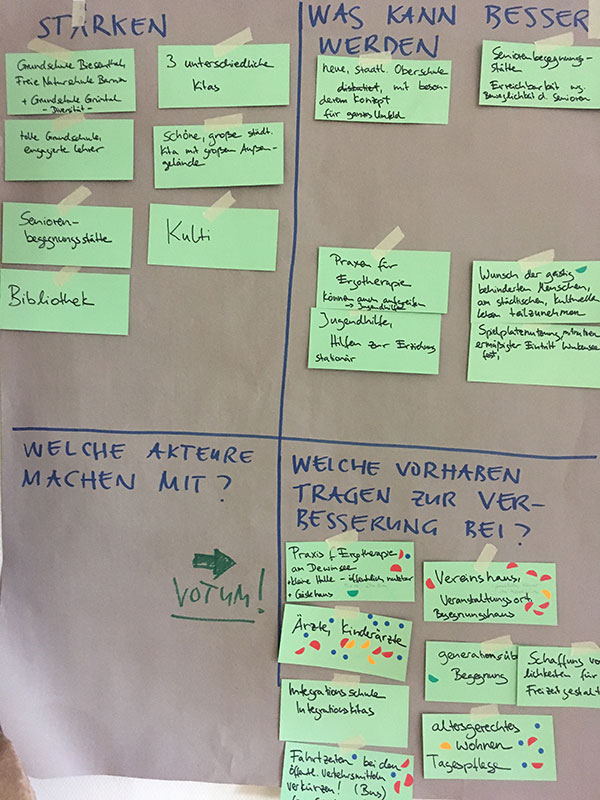 STÄRKEN
Grundschule Biesenthal,
Freie Naturschule Barnim
+ Grundschule Grüntal
- Diversität -
3 unterschiedliche
Kitas
tolle Grundschule,
engagierte Lehrer
Schöne, große städt.
Kita mit großem Außen-
gelände
Senioren-
begegnungsstätte
Kulti
Bibliothek
WAS KANN BESSER
WERDEN
neue, staatl. Oberschule
mit beson-
derem Konzept
für ganzes Umfeld
Seniorenbegegnungs-
stätte
Erreichbarkeit wg.
Beweglichkeit d. Senioren
Praxen für
Ergotherapie
können auch aufgreifen
→ Jugendhilfe
Jugendhilfe,
Hilfen zur Erziehung
stationär
Wunsch der geistig
behinderten Menschen,
am städtischen, kulturellen
Leben teilzunehmen
Spielplatznutzung,
ermäßigter Eintritt Wukensee
fest,
WELCHE AKTEURE
MACHEN MIT?
VOTUM!
WELCHE VORHABEN
TRAGEN ZUR VER-
BESSERUNG BEI?
Praxis f. Ergotherapie
am Dewinsee
• kleine Halle - öffentlich nutzbar
+ Gästehaus
Vereinshaus,
Veranstaltungsort,
Begegnungshaus
Ärzte, Kinderärzte
generationsüb
Begegnung
Schaffung vo
lichkeiten für
Freizeitgestalt
Integrationsschule
Integrationskitas
altersgerechtes
Wohnen
Tagespflege
Fahrtzeiten bei den
öffentl. Verkehrsmitteln
verkürzen! (Bus)